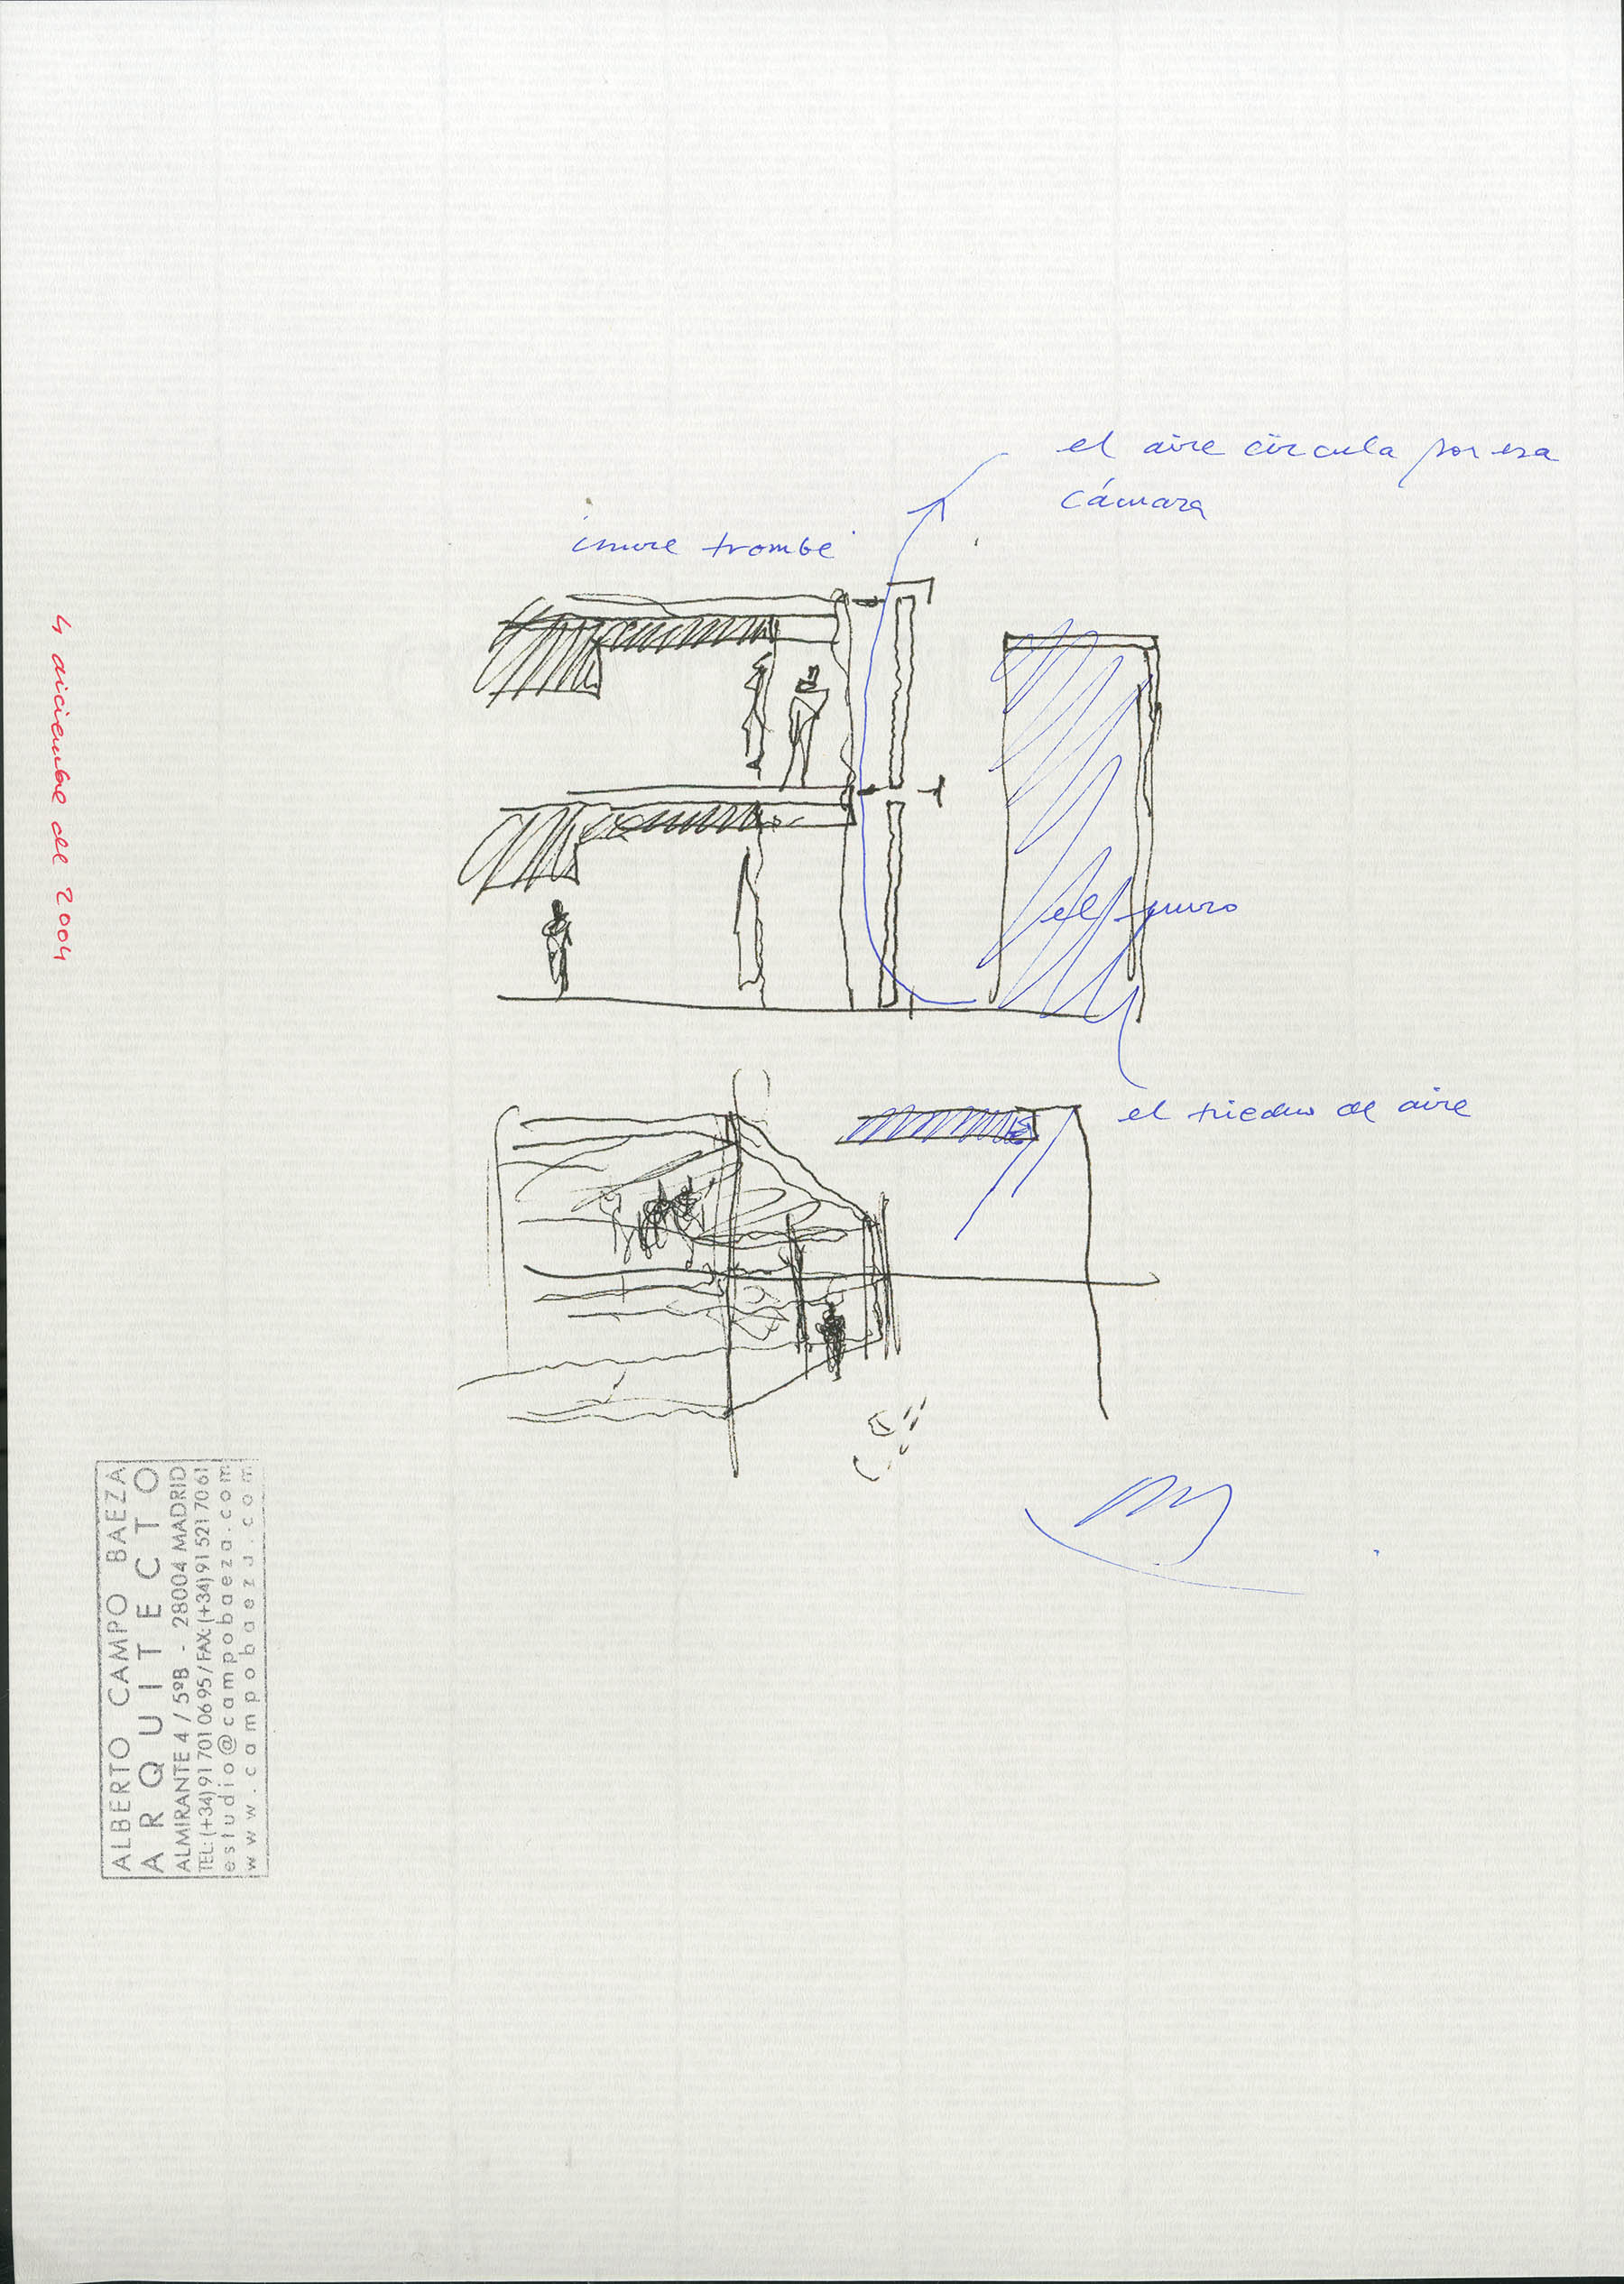 el aire circula por esa
cámara
trombe
el muro
el triedro de aire
4 diciembre del 2004
ALBERTO CAMPO BAEZA
ARQUITECTO
ALMIRANTE 4 / 5ºB - 28004 MADRID
TEL: (+34) 91 701 06 95 / FAX: (+34) 91 521 70 61
estudio@campobaeza.com
www.campobaeza.com